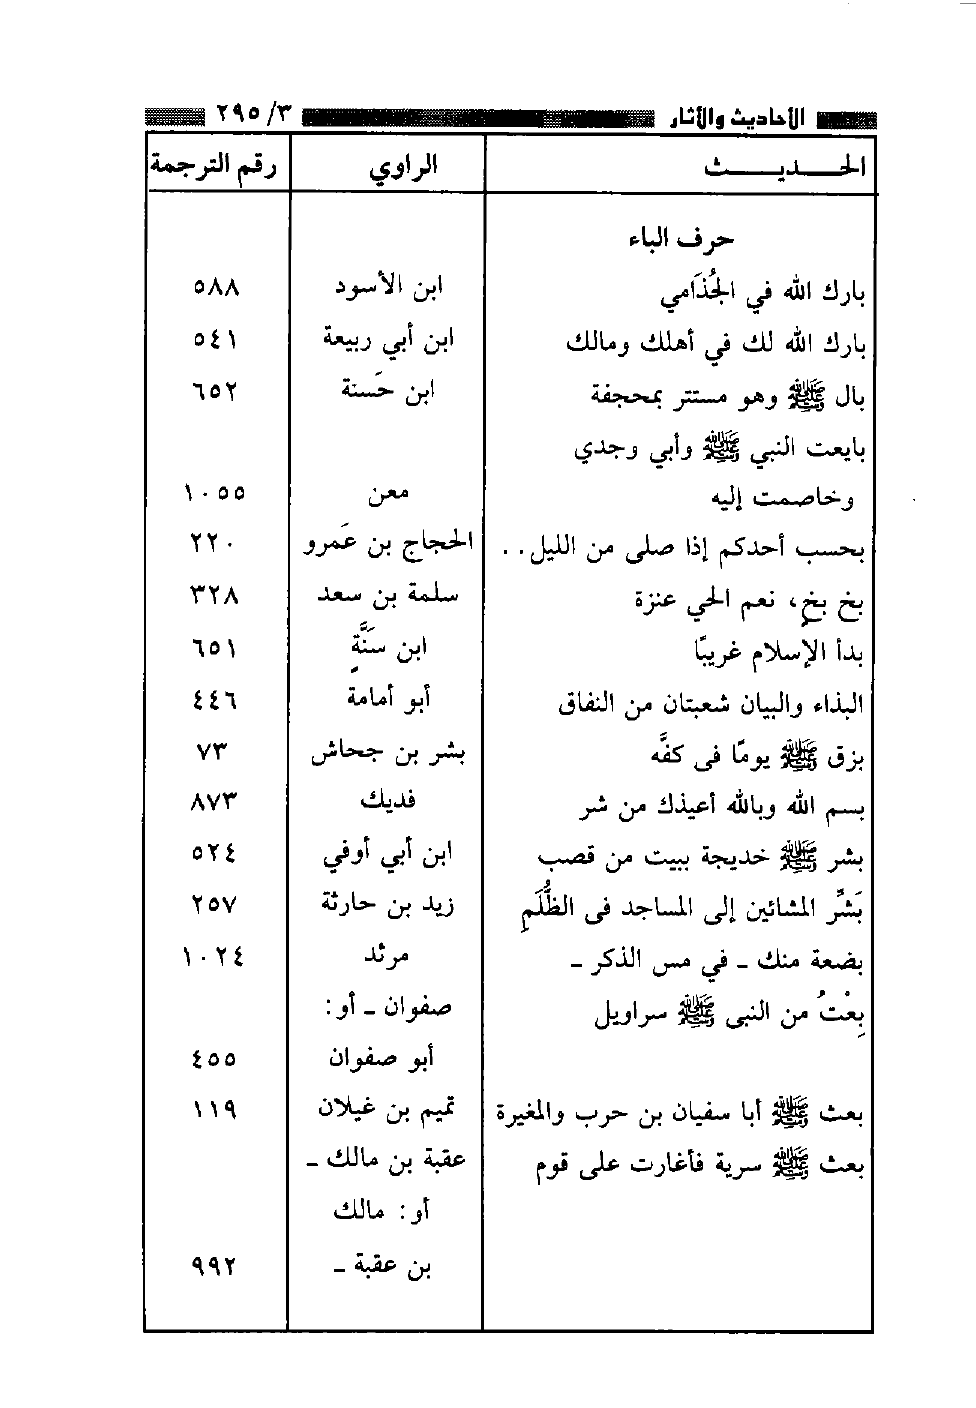 الأحاديث والأثار ٣/ ٢٩٥
الحـــديـــث الراوي رقم الترجمة
حرف الباء
بارك الله في الجُذَامي ابن الأسود ٥٨٨
بارك الله لك في أهلك ومالك ابن أبي ربيعة ٥٤١
بال ﷺ وهو مستتر بمحجفة ابن حَسنة ٦٥٢
بايعت النبي ﷺ وأبي وجدي
وخاصمت إليه معن ١٠٥٥
بحسب أحدكم إذا صلى من الليل.. الحجاج بن عَمرو ٢٢٠
بخ بخٍ، نعم الحي عنزة سلمة بن سعد ٣٢٨
بدأ الإسلام غريبًا ابن سَنَّةٍ ٦٥١
البذاء والبيان شعبتان من النفاق أبو أمامة ٤٤٦
بزق ﷺ يومًا فى كفَّه بشر بن جحاش ٧٣
بسم الله وبالله أعيذك من شر فديك ٨٧٣
بشر ﷺ خديجة ببيت من قصب ابن أبي أوفي ٥٢٤
بَشِّر المشائين إلى المساجد فى الظُّلَمِ زيد بن حارثة ٢٥٧
بضعة منك - في مس الذكر - مرثد ١٠٢٤
بِعْتُ من النبى ﷺ سراويل صفوان - أو:
أبو صفوان ٤٥٥
بعث ﷺ أبا سفيان بن حرب والمغيرة تميم بن غيلان ١١٩
بعث ﷺ سرية فأغارت على قوم عقبة بن مالك -
أو: مالك
بن عقبة - ٩٩٢